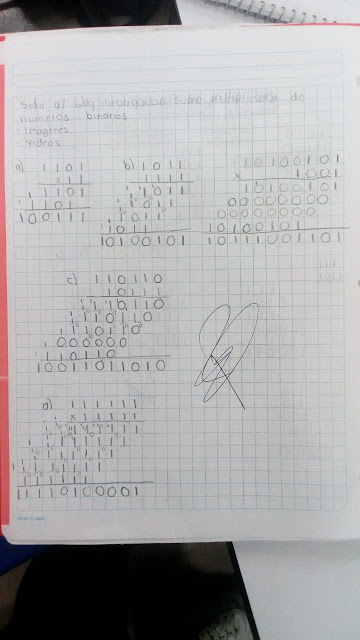 Subir al blog informacion sobre multiplicacion de
numeros binarios
· Imagenes
· videos
a) 1101
x11
1101
1101
100111
b) 1011
1111
1011
1011
1011
1011
10100101
10100101
x 1001
10100101
00000000
00000000
10100101
10111001101
c) 110110
110111
110110
110110
110110
000000
110110
10011011010
d) 111111
x11111
111111
111111
111111
111111
111111
11110100001